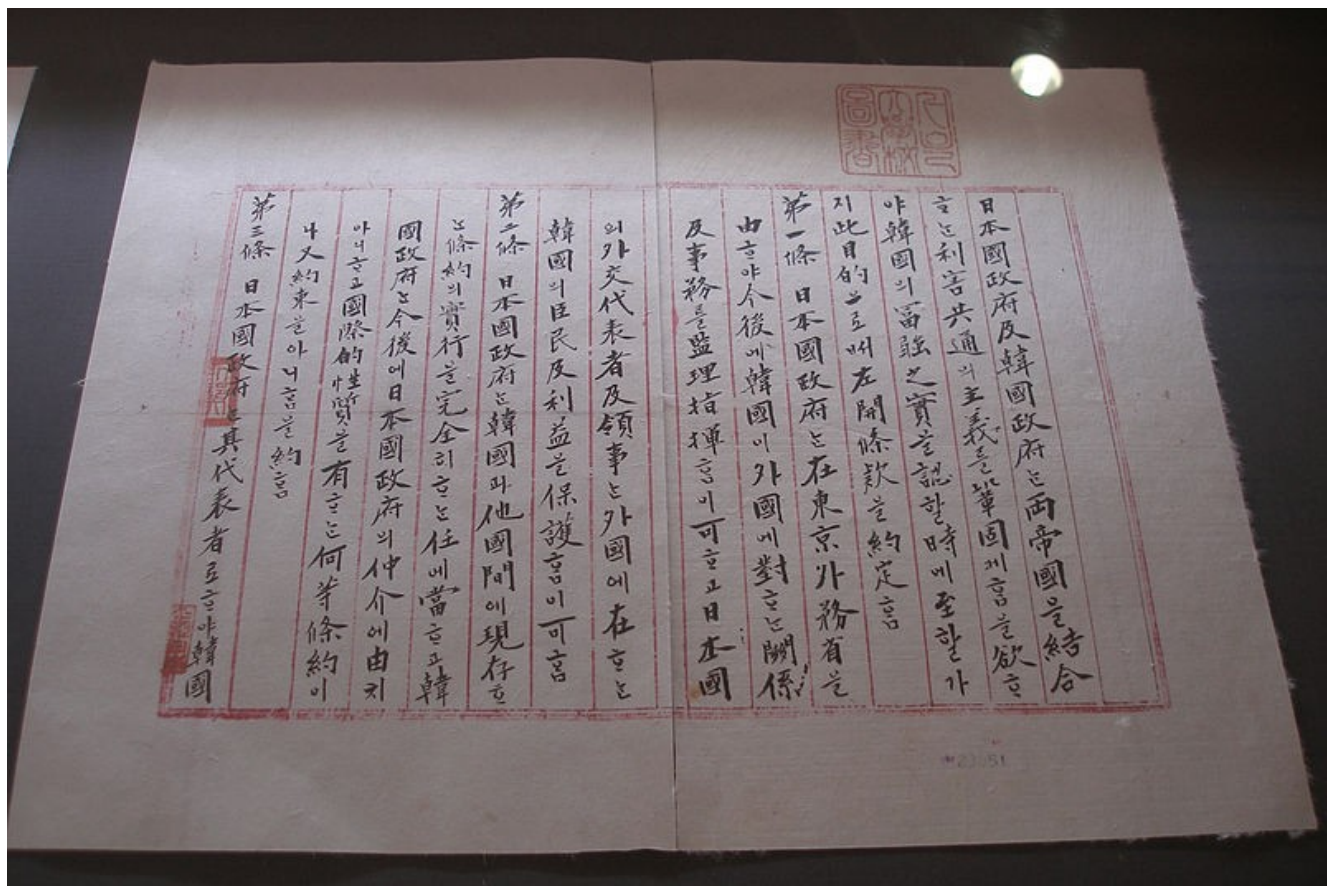 日本國政府及韓國政府는両帝國을結合
ᄒᆞ는利害共通의主義를鞏固케홈을欲ᄒᆞ
야韓國의冨強之實을認할時에至할가
지此目的으로써左開條欵을約定홈
第一條 日本國政府는在東京外務省을
由ᄒᆞ야今後에韓國이外國에對ᄒᆞ는關係
及事務를監理指揮홈이可ᄒᆞ고日本國
의外交代表者及領事는外國에在ᄒᆞ는
韓國의臣民及利益을保護홈이可홈
第二條 日本國政府는韓國과他國間에現存ᄒᆞ
는條約의實行을完全히ᄒᆞ는任에當ᄒᆞ고韓
國政府는今後에日本國政府의仲介에由치
아니ᄒᆞ고國際的性質을有ᄒᆞ는何等條約이
나又約束을아니홈을約홈
第三條 日本國政府는其代表者로ᄒᆞ야韓國